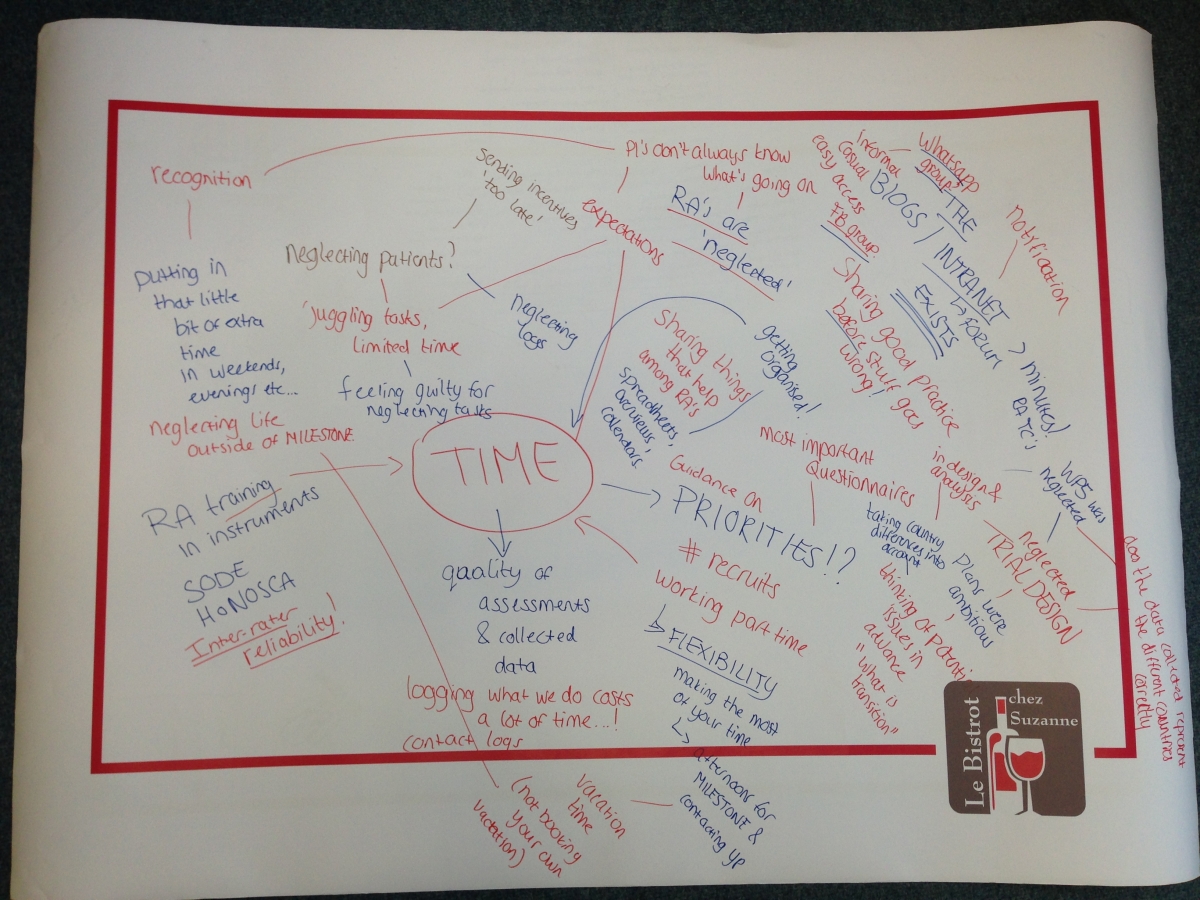 recognition
putting in
that little
bit of extra
time
in weekends,
evenings etc...
neglecting life
outside of MILESTONE
RA training
in instruments
SODE
HoNOSCA
Inter-rater
reliability!
Sending incentives
'too late'
neglecting patients?
'juggling tasks,
limited time
feeling guilty for
neglecting tasks
neglecting
logs
PI's don't always know
what's going on
expectations
RA's are
'neglected'
TIME
quality of
assessments
& collected
data
logging what we do costs
a lot of time...!
contact logs
Sharing things
that help
among RA's
spreadsheets,
overviews,
calendars
getting
organised!
Guidance on
PRIORITIES!?
# recruits
working part time
FLEXIBILITY
making the most
of your time
afternoons for
MILESTONE &
contacting YP
vacation
time
(not booking
your own
vacation)
most important
Questionnaires
Informal
casual
easy access
FB group
Whatsapp
group
THE
BLOGS / INTRANET
FORUM
EXISTS
notification
> minutes!
Sharing good practice
before stuff goes
wrong!
in design &
analysis
taking country
differences into
account
thinking of
issues in
advance
"what is
transition"
Plans were
ambitious
neglected
TRIAL DESIGN
WP5 was
neglected
does the data collected represent
the different countries
correctly
Le Bistrot
chez
Suzanne